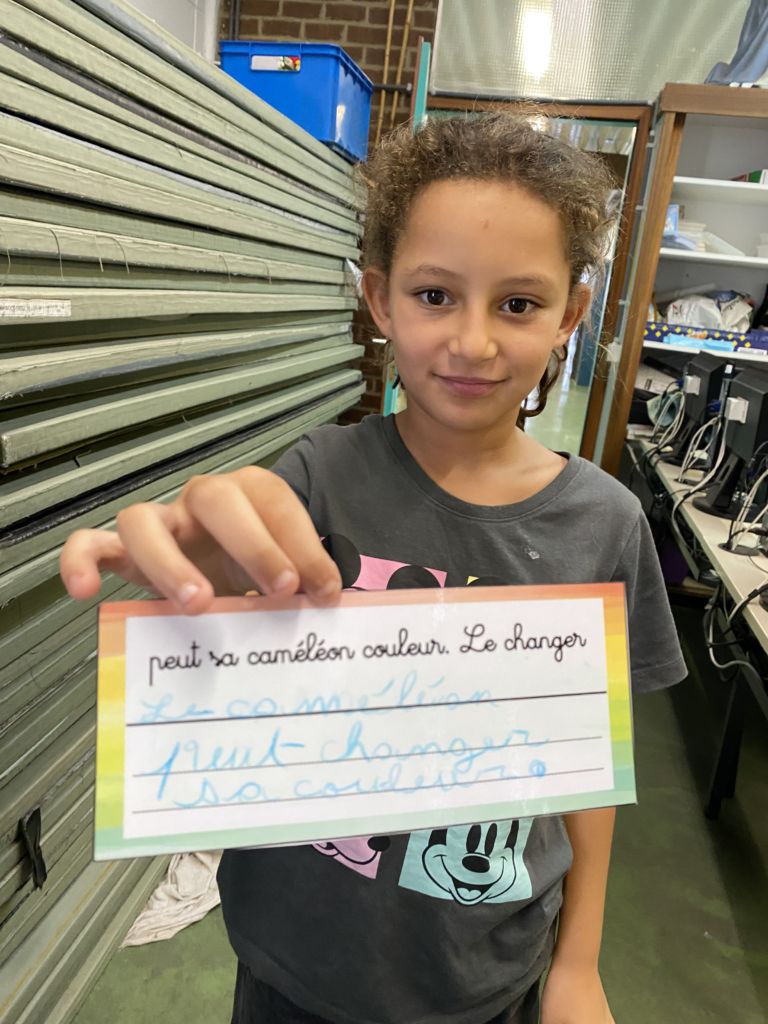 peut sa caméléon couleur. Le changer
Le caméléon
peut changer
sa couleur.